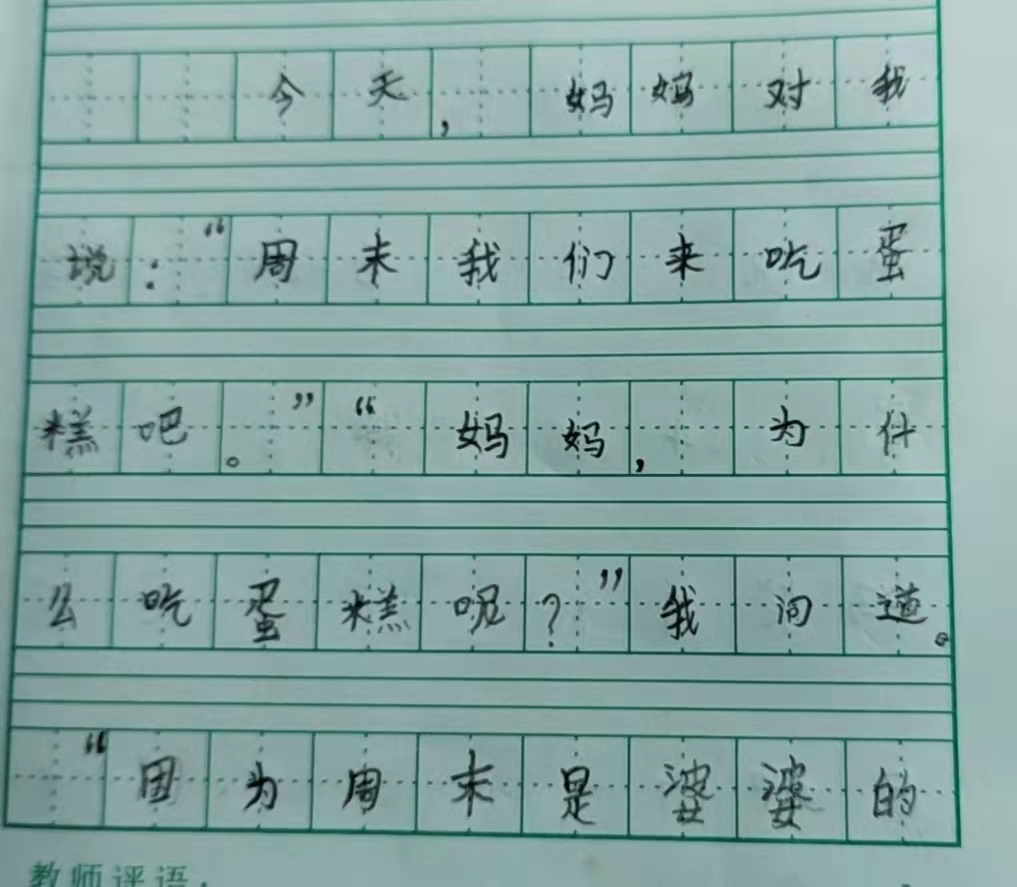 今天，妈妈对我
说：“周末我们来吃蛋
糕吧。”“妈妈，为什
么吃蛋糕呢？”我问道。
“因为周末是婆婆的
教师评语：